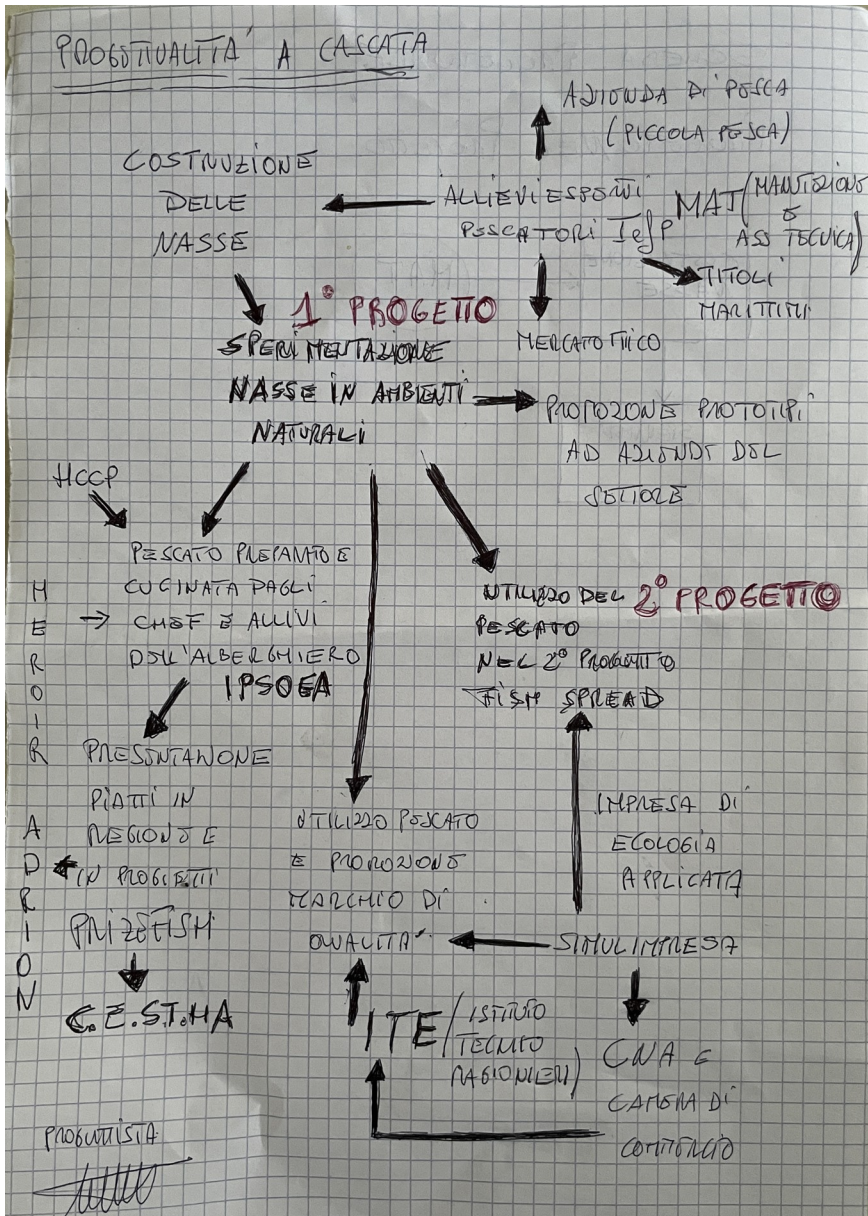 PROGETTUALITA' A CASCATA
AZIENDA DI PESCA
(PICCOLA PESCA)
COSTRUZIONE
DELLE
NASSE
ALLIEVI ESPERTI
PESCATORI IeFP
MAT (MANUTEZIONE
E
ASS TECNICA)
TITOLI
MARITTIMI
1° PROGETTO
SPERIMENTAZIONE
NASSE IN AMBIENTI
NATURALI
MERCATO ITTICO
PROMOZIONE PROTOTIPI
AD AZIENDE DEL
SETTORE
HCCP
PESCATO PREPARATO E
CUCINATA DAGLI
CHEF E ALLIVI
DELL'ALBERGHIERO
IPSOEA
UTILIZZO DEL 2° PROGETTO
PESCATO
NEL 2° PROGETTO
FISH SPREAD
HEROIR ADRION
PRESENTAZIONE
PIATTI IN
REGIONE E
IN PROGETTI
PRIZEFISH
C.E.ST.HA
UTILIZZO PESCATO
E PROMOZIONE
MARCHIO DI
QUALITA'
IMPRESA DI
ECOLOGIA
APPLICATA
SIMULIMPRESA
ITE (ISTITUTO
TECNICO
RAGIONIERI)
CNA E
CAMERA DI
COMMERCIO
PROGETTISTA